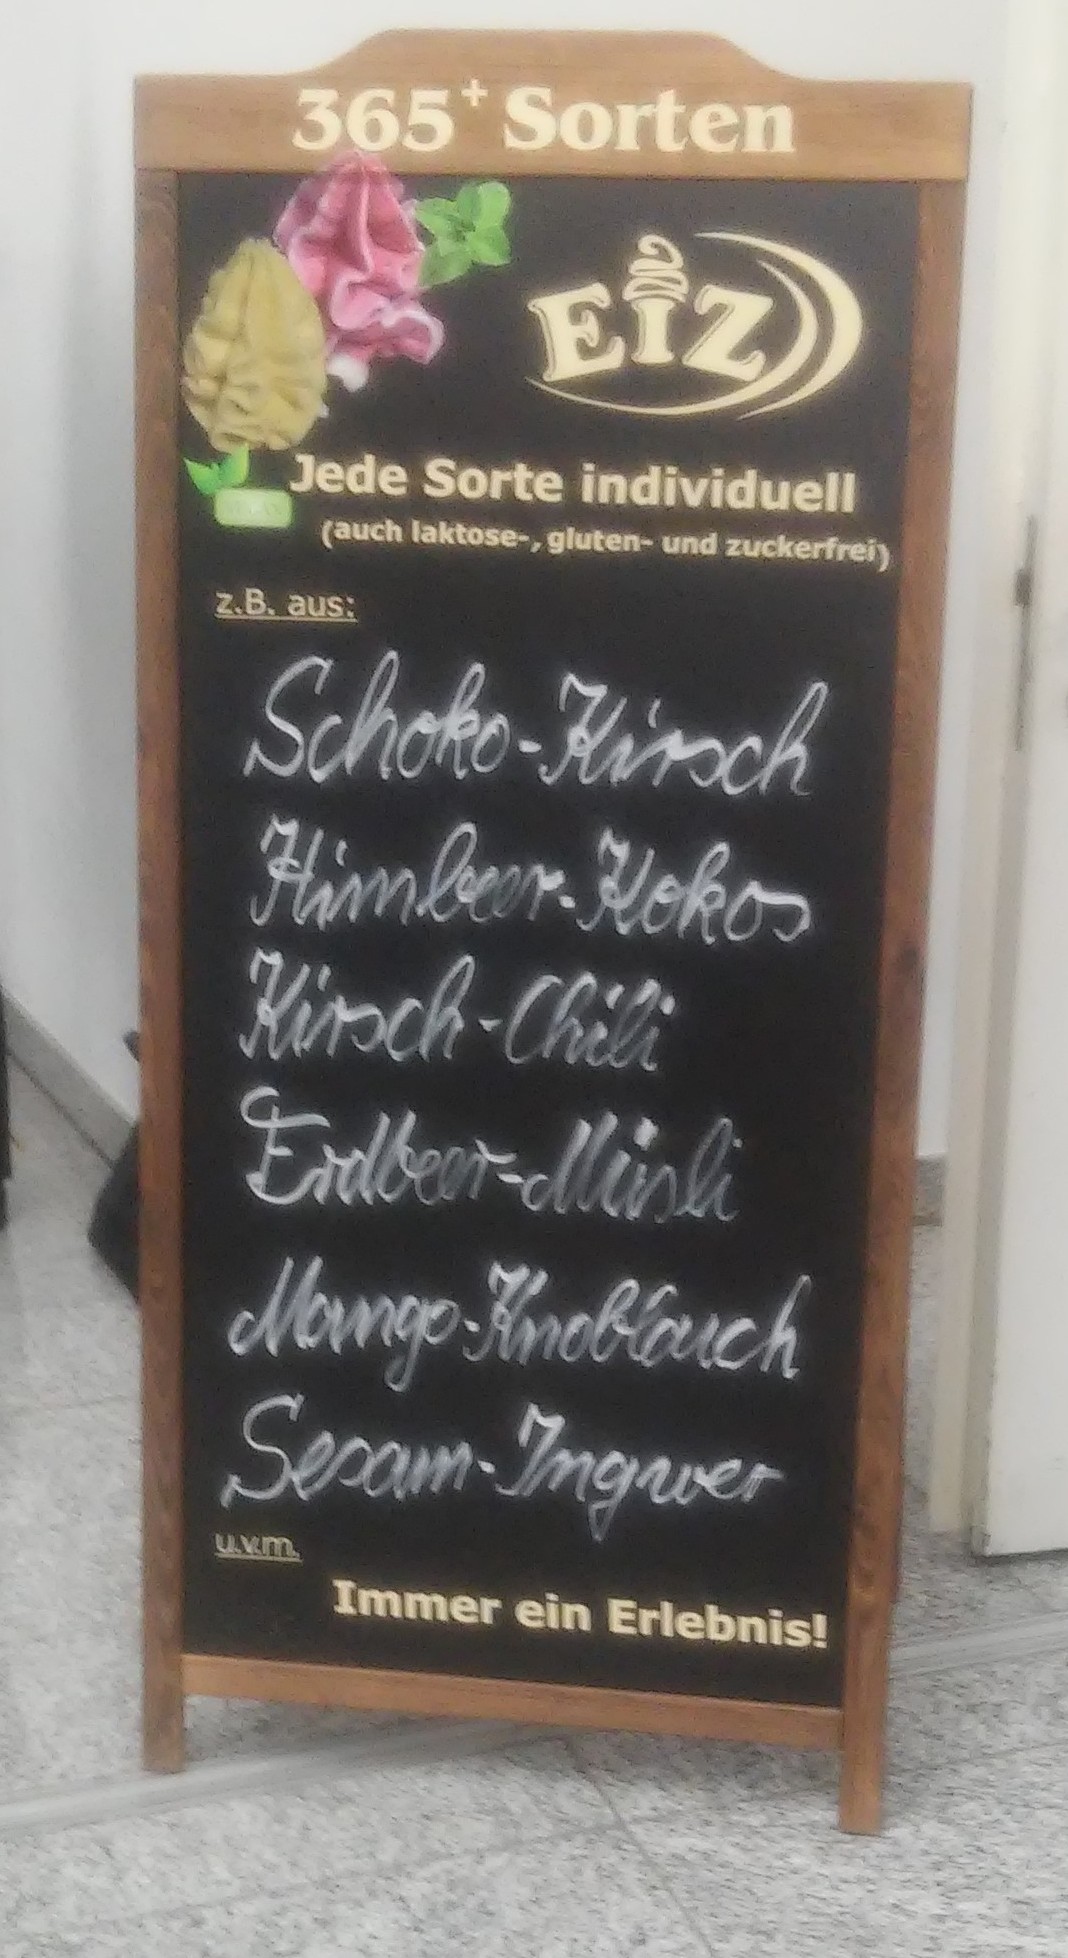 365+ Sorten
EiZ
Jede Sorte individuell
(auch laktose-, gluten- und zuckerfrei)
z.B. aus:
Schoko-Kirsch
Himbeer-Kokos
Kirsch-Chili
Erdbeer-Müsli
Mango-Knoblauch
Sesam-Ingwer
u.v.m.
Immer ein Erlebnis!